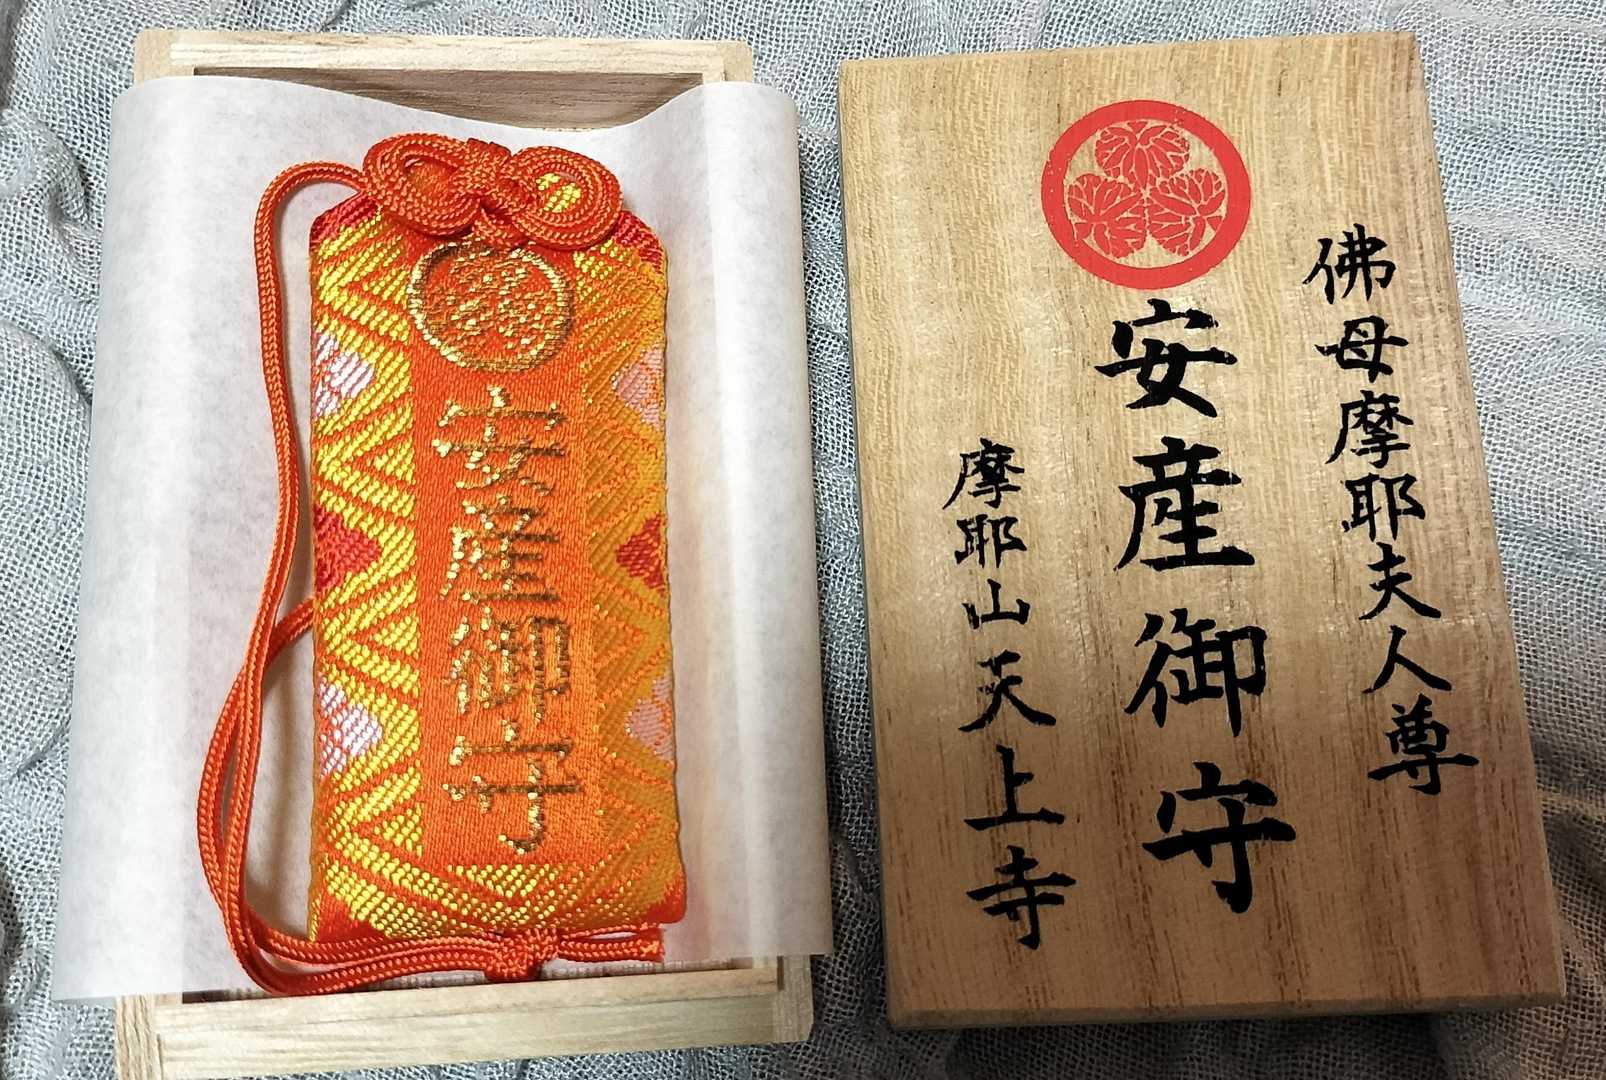 安産御守
佛母摩耶夫人尊
安産御守
摩耶山天上寺